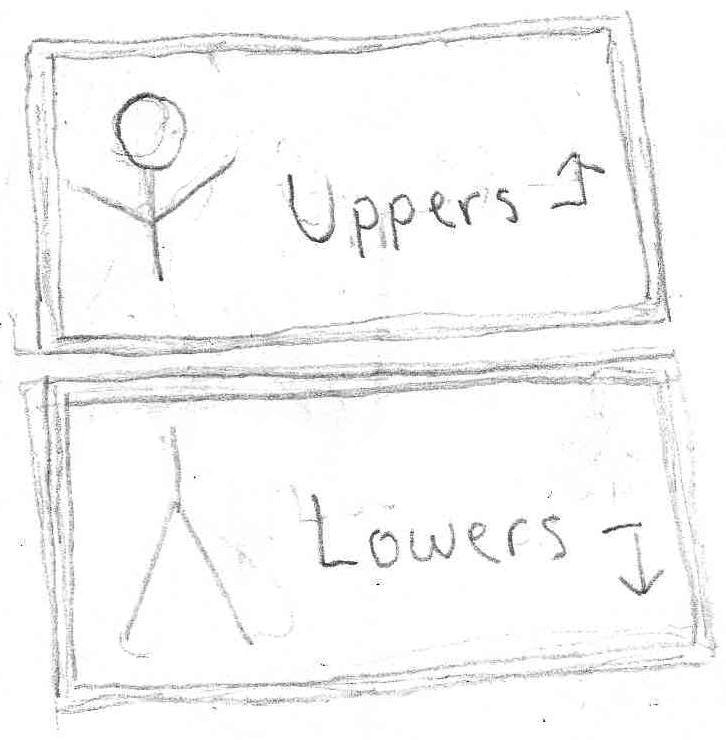 Uppers
Lowers